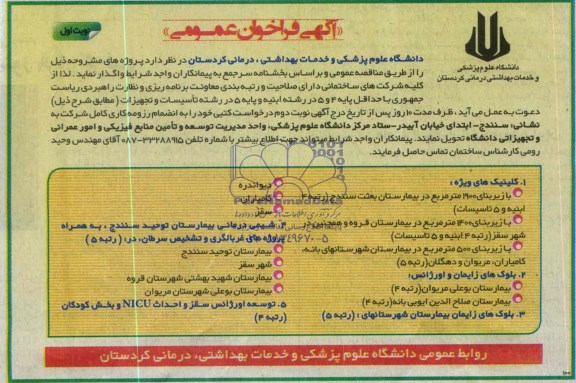 «آگهی فراخوان عمومی»
نوبت اول
دانشگاه علوم پزشکی
و خدمات بهداشتی درمانی کردستان
دانشگاه علوم پزشکی و خدمات بهداشتی ، درمانی کردستان در نظر دارد پروژه های مشروحه ذیل
را از طریق مناقصه عمومی و بر اساس بخشنامه سرجمع به پیمانکاران واجد شرایط واگذار نماید . لذا از
کلیه شرکت های ساختمانی دارای صلاحیت و رتبه بندی معاونت برنامه ریزی و نظارت راهبردی ریاست
جمهوری با حداقل پایه ۴ و ۵ در رشته ابنیه و پایه ۵ در رشته تأسیسات و تجهیزات ( مطابق شرح ذیل)
دعوت به عمل می آید ، ظرف مدت ۱۰ روز پس از تاریخ درج آگهی نوبت دوم درخواست کتبی خود را به انضمام رزومه کاری کامل شرکت به
نشانی: سنندج - ابتدای خیابان آبیدر - ستاد مرکز دانشگاه علوم پزشکی، واحد مدیریت توسعه و تأمین منابع فیزیکی و امور عمرانی
و تجهیزاتی دانشگاه تحویل نمایند. پیمانکاران واجد شرایط میتوانند جهت اطلاع بیشتر با شماره تلفن ۳۳۲۸۸۹۱۵-۰۸۷ آقای مهندس وحید
رومی کارشناس ساختمان تماس حاصل فرمایند.
۱. کلینیک های ویژه :
با زیربنای ۱۹۰۰ مترمربع در بیمارستان بعثت سنندج (رتبه ۴
ابنیه و ۵ تاسیسات)
با زیربنای ۱۴۰۰ مترمربع در بیمارستان قروه و
شهر سقز (رتبه ۴ ابنیه و ۵ تاسیسات)
با زیربنای ۵۰۰ مترمربع در بیمارستان شهرستانهای بانه،
کامیاران، مریوان و دهگلان (رتبه ۵)
۲. بلوک های زایمان و اورژانس:
بیمارستان بوعلی مریوان (رتبه ۴)
بیمارستان صلاح الدین ایوبی بانه (رتبه ۴)
۳. بلوک های زایمان بیمارستان شهرستانهای : (رتبه ۵)
دیواندره
کامیاران
سقز
شیمی درمانی بیمارستان توحید سنندج ، به همراه
پروژه های غربالگری و تشخیص سرطان، در: ( رتبه ۵ )
بیمارستان توحید سنندج
شهر سقز
بیمارستان شهید بهشتی شهرستان قروه
بیمارستان بوعلی شهرستان مریوان
۵. توسعه اورژانس سقز و احداث NICU و بخش کودکان
(رتبه ۴)
روابط عمومی دانشگاه علوم پزشکی و خدمات بهداشتی، درمانی کردستان